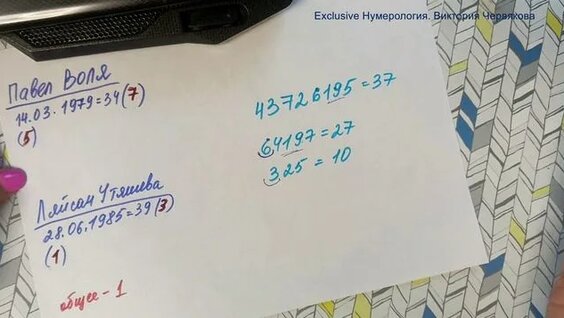 Exclusive Нумерология. Виктория Червякова
Павел Воля
14.03.1979=34(7)
(5)
Ляйсан Утяшева
28.06.1985=39(3)
(1)
общее-1
43726195=37
64197=27
325=10